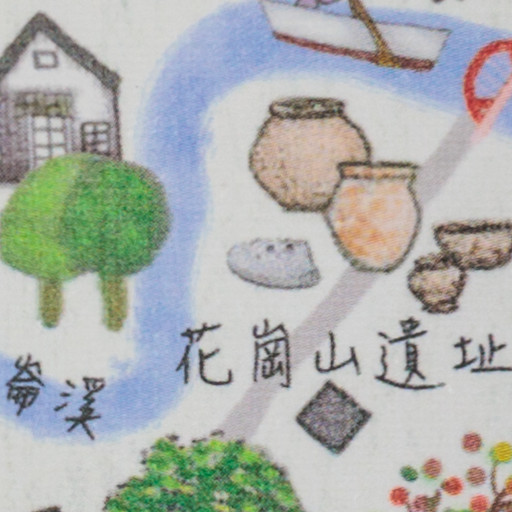 花崗山遺址
崙溪